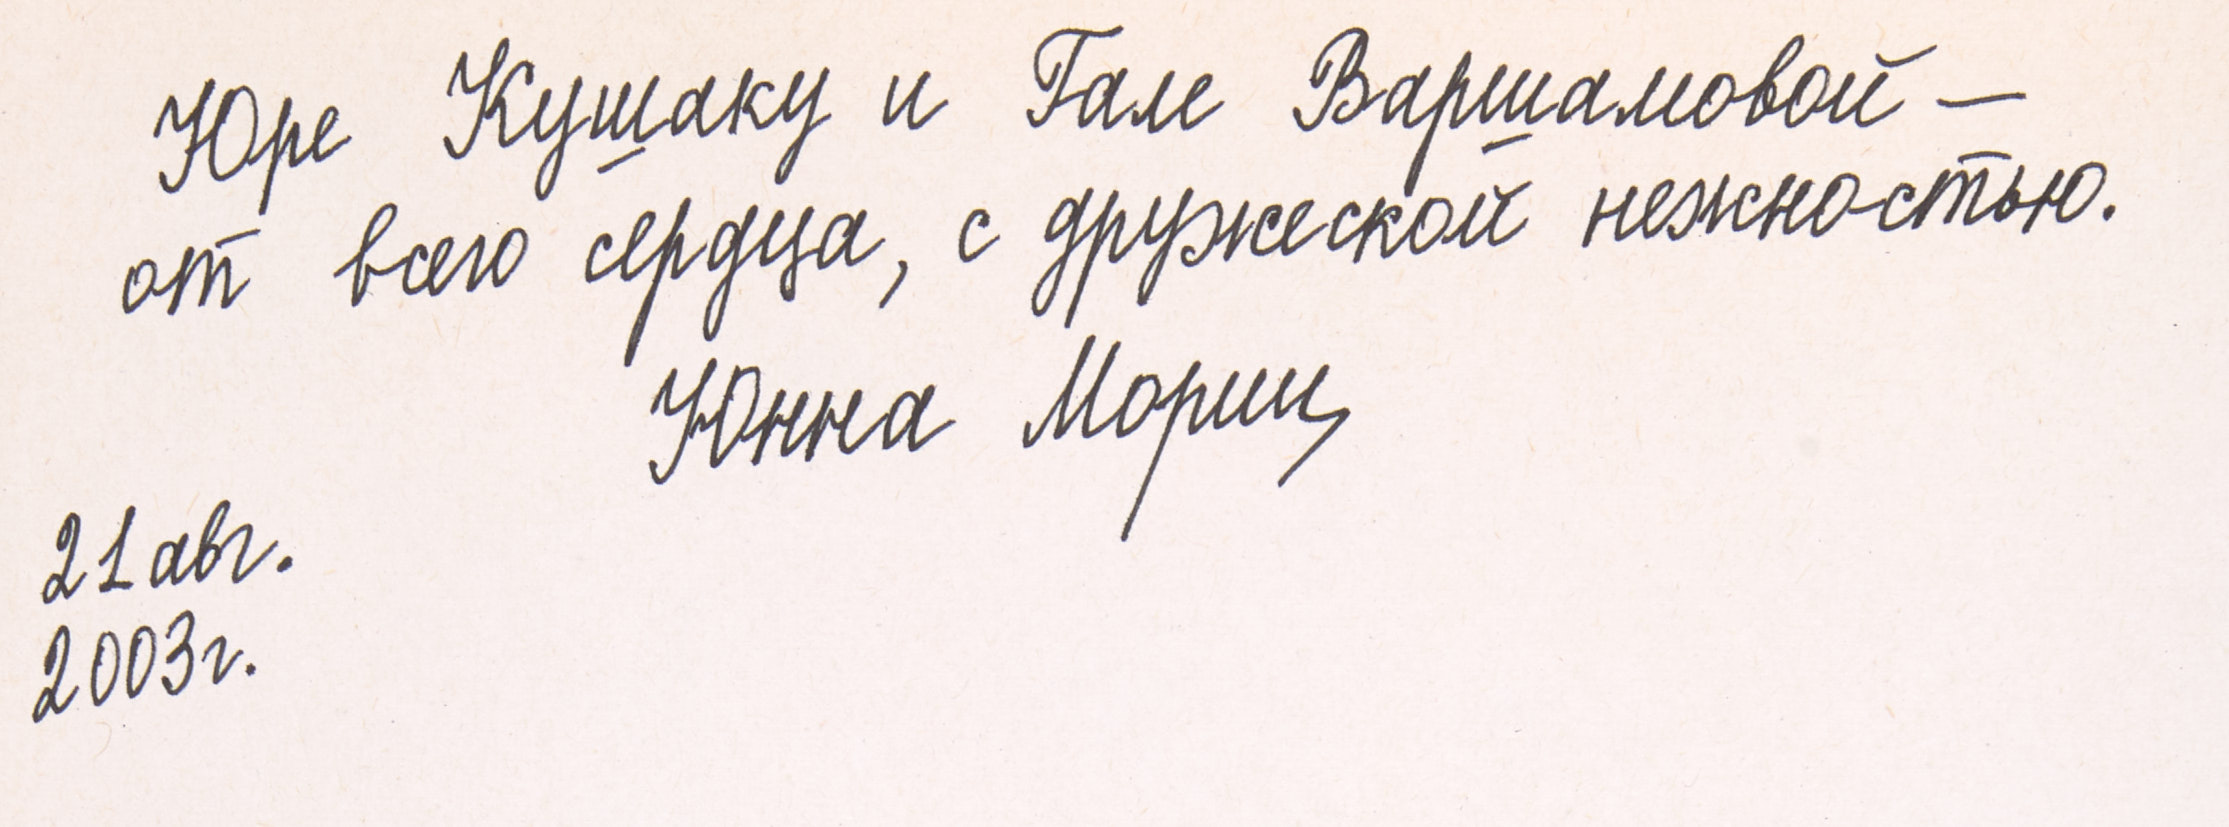 Юре Кушаку и Гале Варшамовой —
от всего сердца, с дружеской нежностью.
Юнна Мориц
21 авг.
2003г.